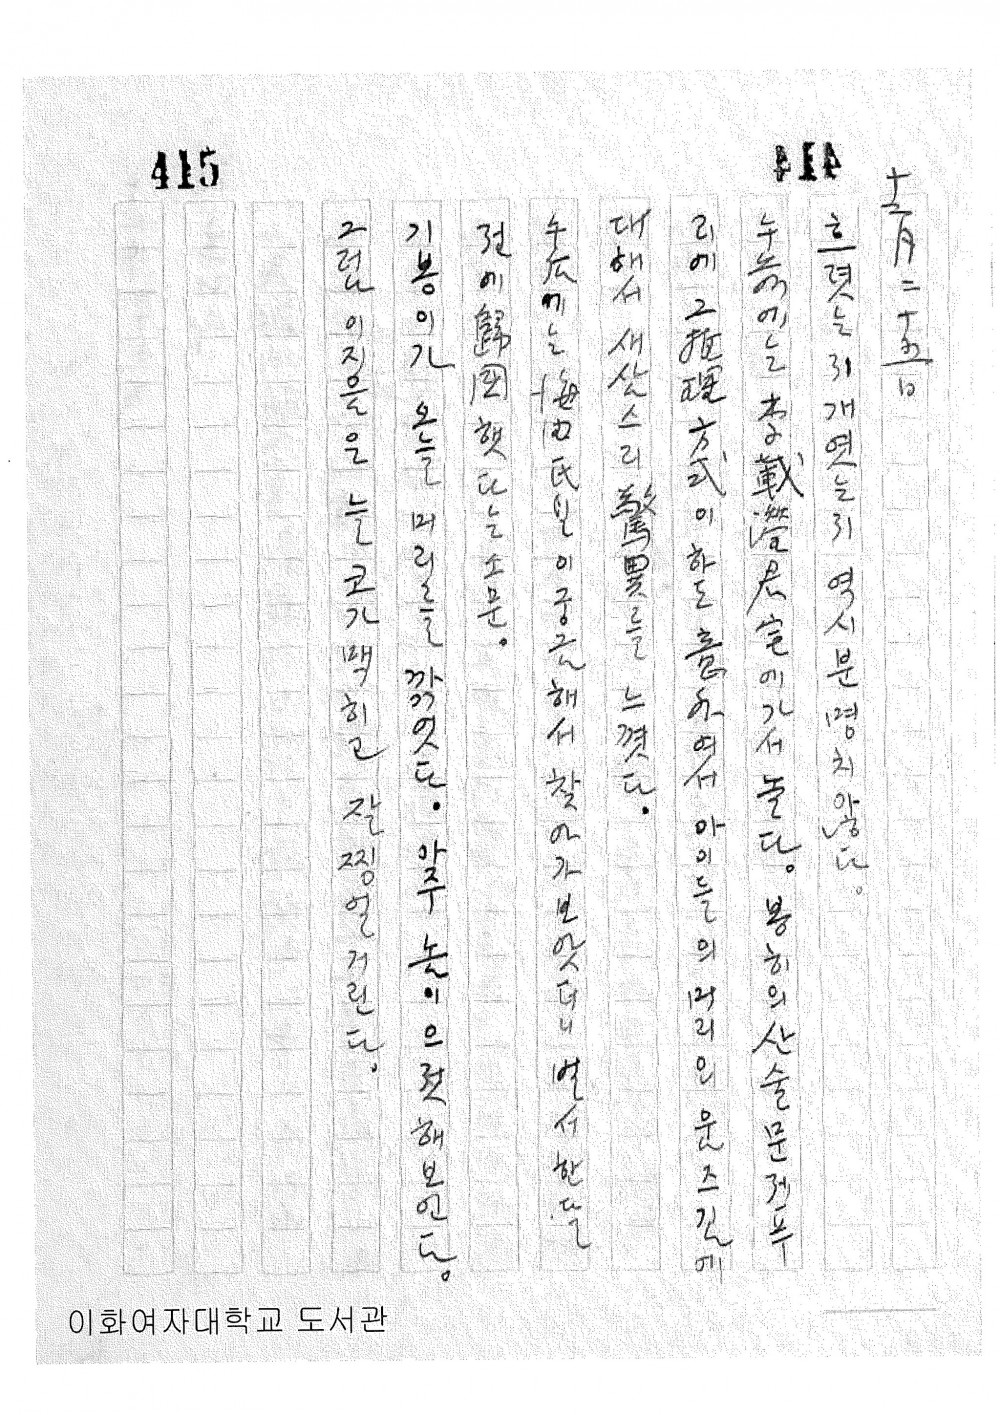 414
十二月二十五日
흐렷는지 개엿는지 역시 분명치 않다.
午前에는 李載瀅君宅에 가서 놀다. 봉히의 산술문제푸
리에 그 推理方式이 하도 意外여서 아이들의 머리의 운즈김에
대해서 새삼스리 驚異를 느꼇다.
午后에는 海田氏일이 궁금해서 찾아가보앗더니 벌서 한달
전에 歸國햇다는 소문.
기봉이가 오늘 머리를 깎엇다. 아주 놀이으젓해보인다.
그럼 이즈음은 늘 코가 맥히고 잘 찡얼거린다.
415
이화여자대학교 도서관